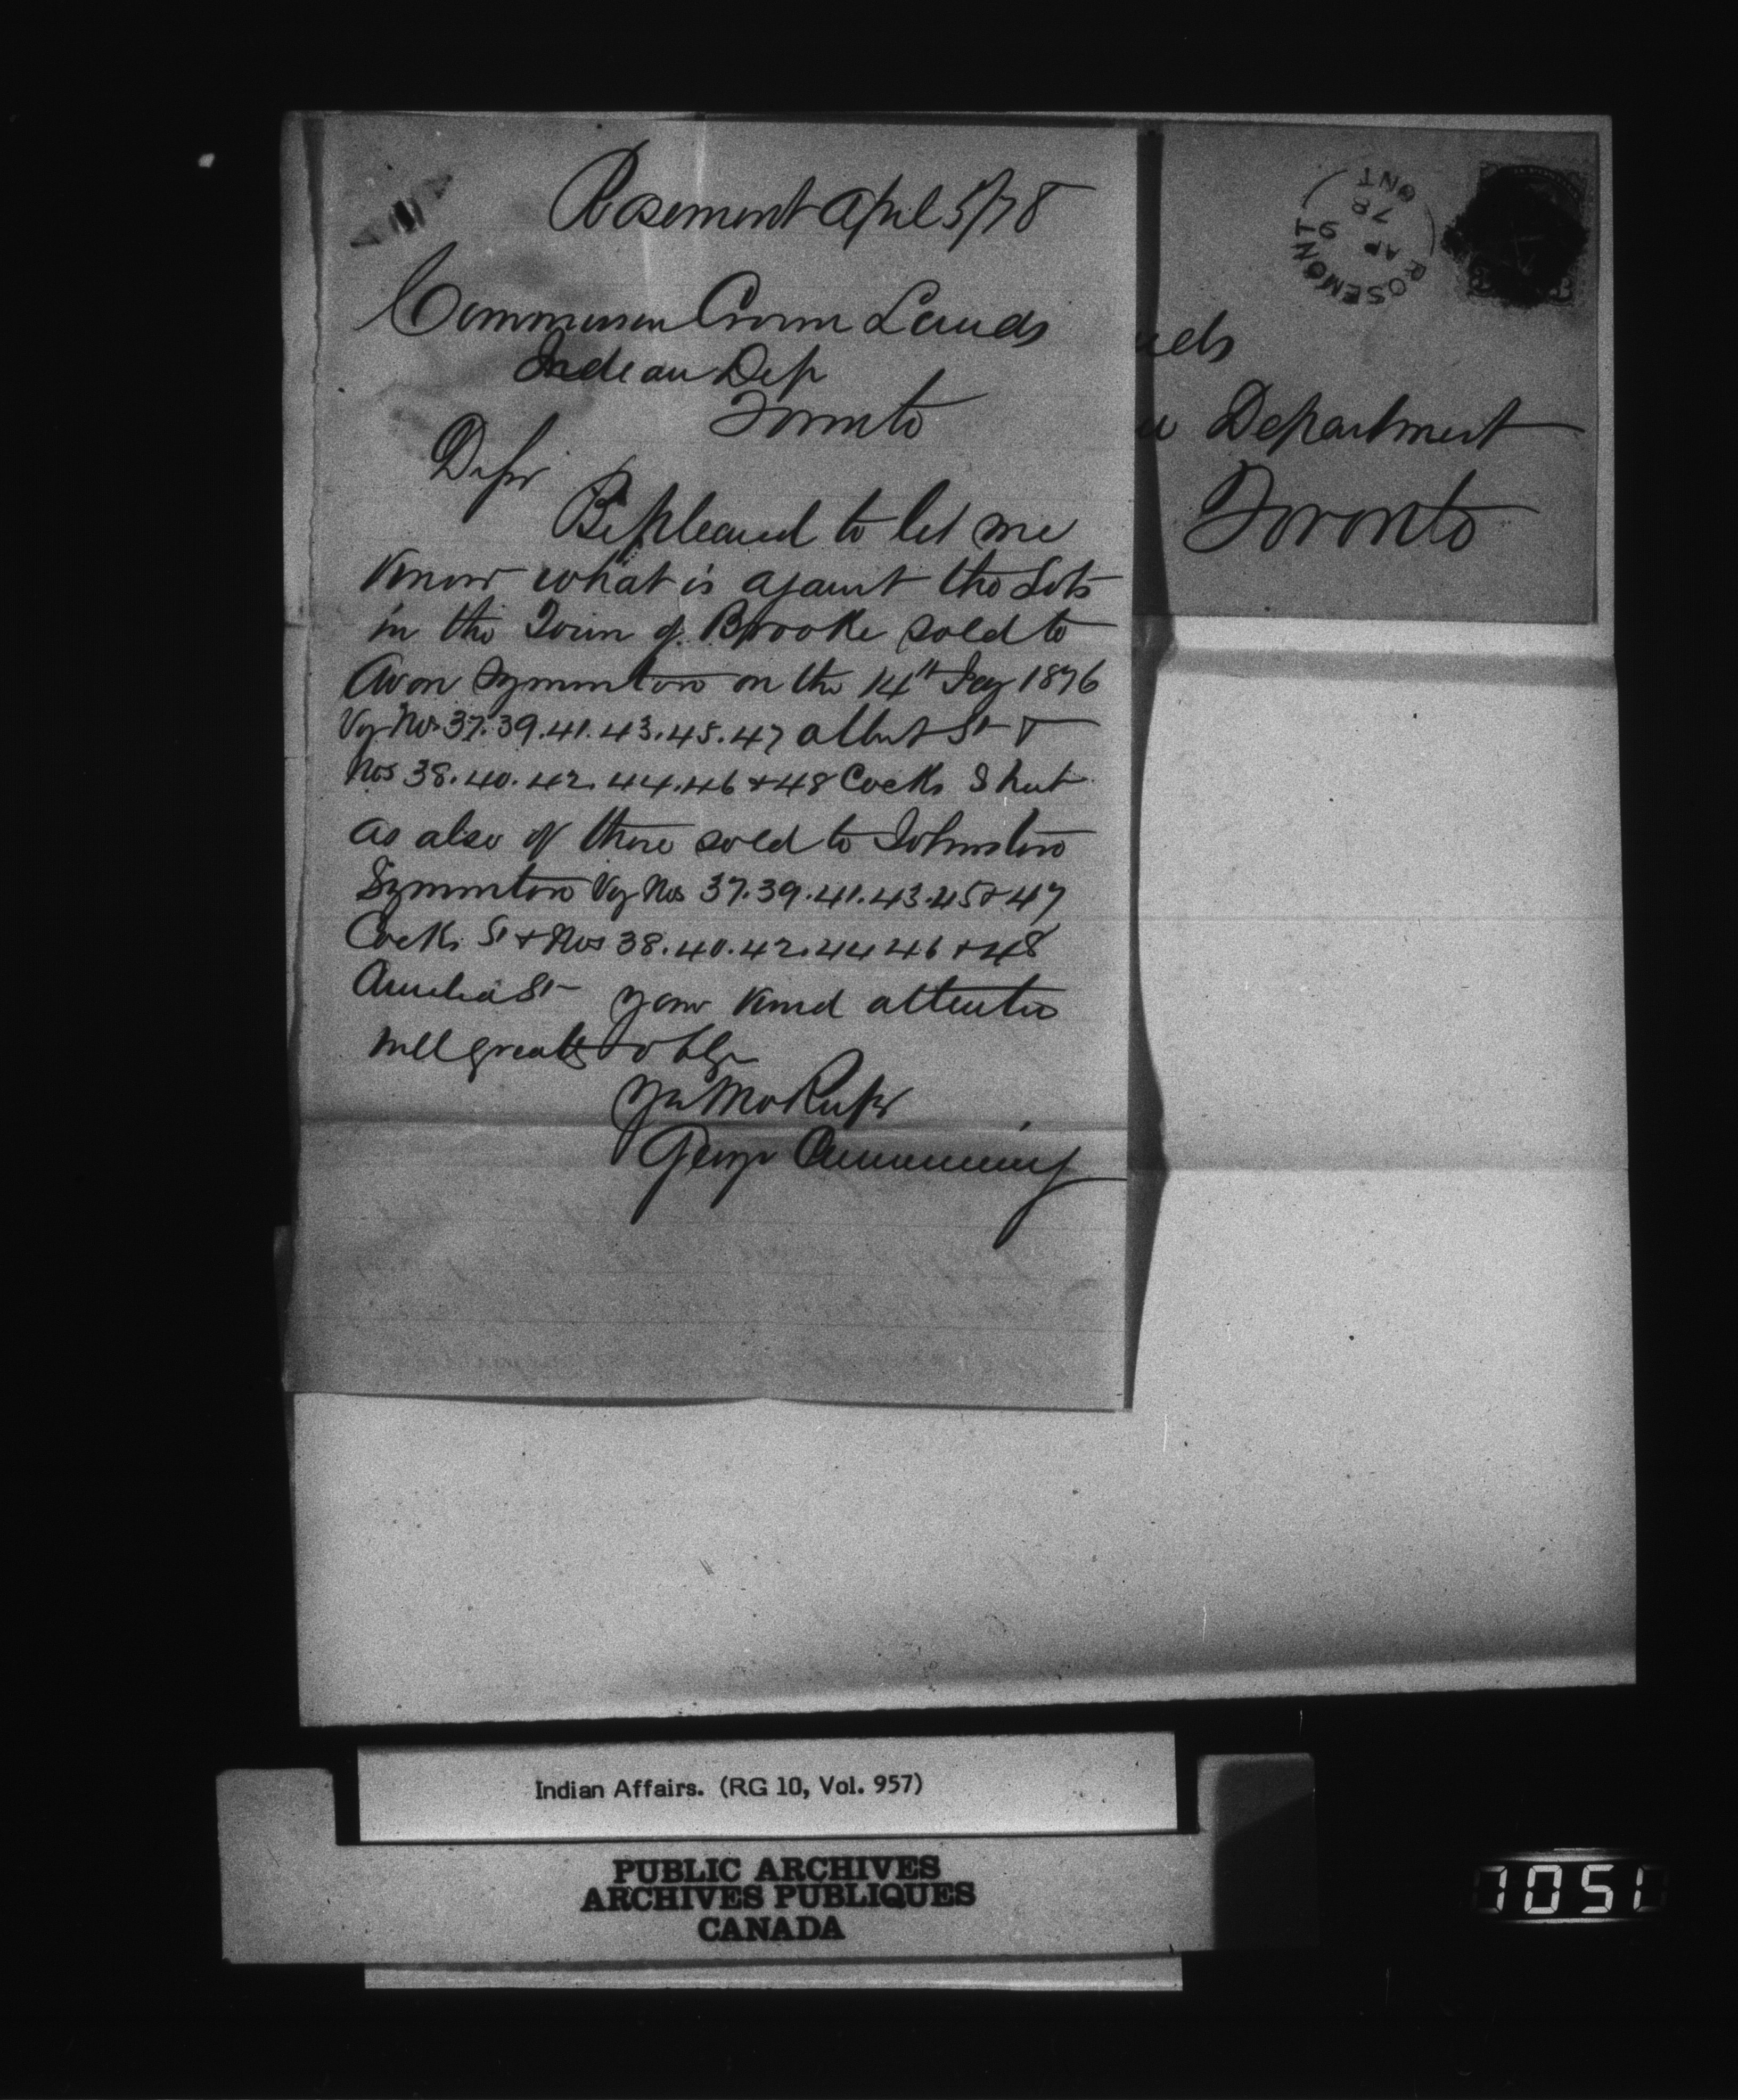 Rosemont April 5/78
Commissioner Crown Lands
Indian Dep
Toronto
D Sir
Be pleased to let me
Know what is against the Lots
in the Town of Brooke sold to
Avon Symmton on the 14th 1876
Vz Nos. 37. 39. 41. 43. 45. 47 Albert St &
Nos 38. 40. 42. 44. 46 & 48 Cocks Street
as also of those sold to Johnston
Symmton Vz Nos 37. 39. 41. 43. 45 & 47
Cocks St & Nos 38. 40. 42. 44 46 & 48
Amelia St your Kind attention
will greatly oblige
George Cumming
ROSEMONT
AP 9
78
ONT
3
nds
n Department
Toronto
Indian Affairs. (RG 10, Vol. 957)
PUBLIC ARCHIVES
ARCHIVES PUBLIQUES
CANADA
1051